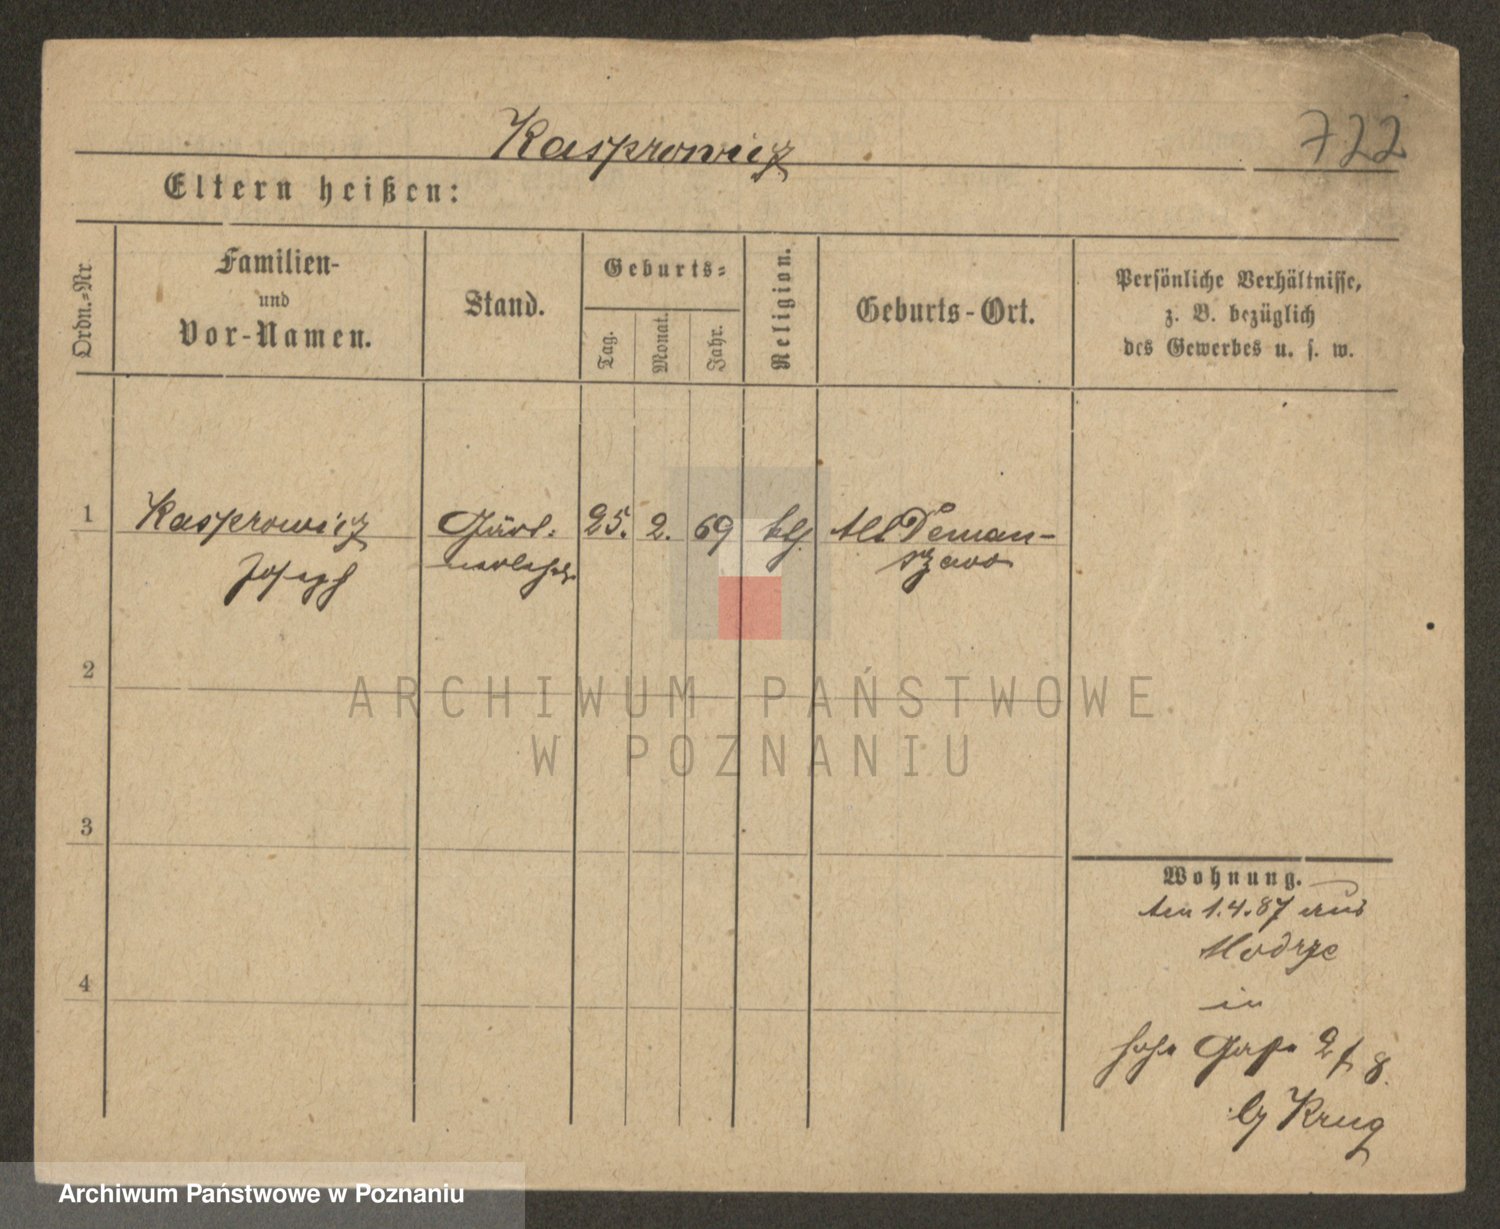 Kasprowicz
722
Eltern heißen:
Ordn.-Nr.
Familien-
und
Vor-Namen.
Stand.
Geburts-
Tag.
Monat.
Jahr.
Religion.
Geburts-Ort.
Persönliche Verhältnisse,
z. B. bezüglich
des Gewerbes u. s. w.
1
Kasprowicz
Joseph
Gärt-
nerlehrl.
25.
2.
69
klg
Alt Deman-
czewo
2
3
4
Wohnung.
den 1.4.87 aus
Modrze
in
hohe Gasse 2/8.
by Krug
ARCHIWUM PAŃSTWOWE
W POZNANIU
Archiwum Państwowe w Poznaniu